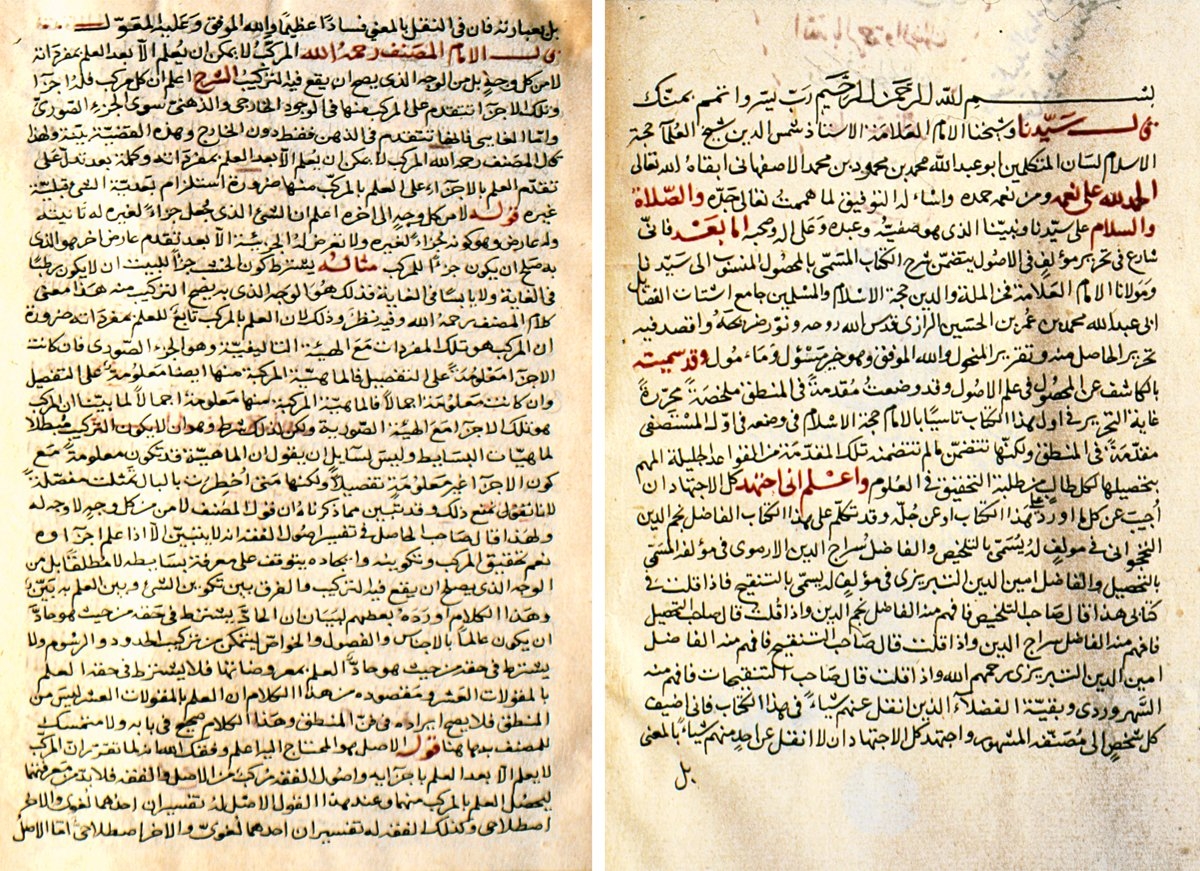 بسم الله الرحمن الرحيم رب يسر وا تمم بمنك
قال سيدنا وشيخنا الامام العلامة الاستاذ شمس الدين شيخ العلما حجة
الاسلام لسان المتكلمين ابو عبد الله محمد بن محمود بن محمد الاصفهانى ابقاه الله تعالى
الحمد لله على نعمه ومن نعمه حمده واسئاله التوفيق لما هممت تعالى جده والصلاة
والسلام على سيدنا ونبينا الذى هو صفيه وعبده وعلى اله وصحبه اما بعد فانى
شارع فى تحرير مؤلف فى الاصول يتضمن شرح الكتاب المسمى بالمحصول المنسوب الى سيدنا
ومولانا الامام العلامة فخر الملة والدين حجة الاسلام والمسلمين جامع اشتات الفضائل
ابى عبد الله محمد بن عمر بن الحسين الرازى قدس الله روحه ونور ضريحه واقصد فيه
تحرير الحاصل منه وتقرير المنحول والله الموفق وهو خير مسؤل وماءمول وقد سميته
بالكاشف عن المحصول فى علم الاصول وقد وضعت مقدمة فى المنطق ملخصة محررة
غاية التحرير فى اول هذا الكتاب تاسيا بالامام حجة الاسلام فى وضعه فى اول المستصفى
مقدمة فى المنطق ولكنها تتضمن ما لم تتضمنه تلك المقدمة من القواعد الجليلة المهم
بتحصيلها كل طالب من طلبة التحقيق فى العلوم واعلم انى اجتهد كل الاجتهاد ان
اجيب عن كل ما اورد على هذا الكتاب او عن جله وقد تكلم على هذا الكتاب الفاضل نجم الدين
النخجوانى فى مولف له يسمى بالتلخيص والفاضل سراج الدين الارموى فى مؤلفه المسمى
بالتحصيل والفاضل امين الدين التبريزى فى مؤلف له يسمى بالتنقيح فاذا قلت فى
كتابى هذا قال صاحب التلخيص فافهم منه الفاضل نجم الدين واذا قلت قال صاحب التحصيل
فافهم منه الفاضل سراج الدين واذا قلت قال صاحب التنقيح فافهم منه الفاضل
امين الدين التبريزى رحمهم الله واذا قلت قال صاحب التنقيحات فافهم منه
السهروردى وبقية الفضلاء الذين انقل عنهم شياء فى هذا الكتاب فانى اضيف
كل شخص الى مصنفه المشهور واجتهد كل الاجتهاد ان لا انقل عن احد منهم شياء بالمعنى
بل
بل بعبارته فان فى النقل بالمعنى فسادا عظيما والله الموفق وعليه المعول
قال الامام المصنف رحمه الله المركب لا يمكن ان يعلم الا بعد العلم بمفرداته
لا من كل وجه بل من الوجه الذى يصح ان يقع فيه التركيب الشرح اعلم ان كل مركب فله اجزا
وتلك الاجزا تتقدم على المركب منها فى الوجود الخارجى والذهنى سوى الجزء الصورى
واما الغايى فانها تتقدم فى الذهن فقط دون الخارج وهذه القضية بينة ولهذا
قال المصنف رحمه الله المركب لا يمكن ان يعلم الا بعد العلم بمفرداته وكلمة بعد تدل على
تقدم العلم بالاجزاء على العلم بالمركب منها ضرورة استلزام بعدية الشئ قبلية
غيره قوله لا من كل وجه الى اخره اعلم ان الشئ الذى جعل جزاء لغيره له ذاتيته
وله عارض وهو كونه جزءا لغيره ولا تعرض له الجزئية الا بعد تقدم عارض اخر هو الذى
به صلح ان يكون جزءا للمركب مثاله يشترط كون الخشب جزءا للبيت ان لا يكون رطبا
فى الغاية ولا يابسا فى الغاية فذلك هو الوجه الذى به يصح التركيب منه هذا معنى
كلام المصنف رحمه الله وفيه نظر وذلك لان العلم بالمركب تابع للعلم بمفرداته ضرورة
ان المركب هو تلك المفردات مع الهيئة التاليفية وهو الجزء الصورى فان كانت
الاجزا معلومة على التفصيل فالماهية المركبة منها ايضا معلومة على التفصيل
وان كانت معلومة اجمالا فالماهية المركبة منها معلومة اجمالا لما بينا ان المركب
هو تلك الاجزا مع الهيئة الصورية ولكن لذلك شرط وهو ان لا يكون التركيب مبطلا
لماهيات البسايط وليس لسايل ان يقول ان الماهية قد تكون معلومة مع
كون الاجزا غير معلومة تفصيلا ولكنها متى اخطرت بالبال تمثلت مفصلة
لانا نقول نمنع ذلك وقد تبين مما ذكرناه ان قول المصنف لا من كل وجه لا وجه له
ولهذا قال صاحب الحاصل فى تفسير اصول الفقه انه لا يتبين الا اذا علم اجزاؤه
نعم تحقيق المركب وتكوينه وايجاده يتوقف على معرفة بسايطه لا مطلقا بل من
الوجه الذى يصلح ان يقع فيه التركيب فالفرق بين تكوين الشئ وبين العلم به بين
وهذا الكلام اورده بعضهم لبيان ان الحاد يشترط فى حقه من حيث هو حاد
ان يكون عالما بالاجناس والفصول والخواص ليتمكن من تركيب الحدود والرسوم ولا
يشترط فى حقه من حيث هو حاد العلم بمعروضاتها فلا يشترط فى حقه العلم
بالمقولات العشر ومقصوده من هذا الكلام ان العلم بالمقولات العشر ليس من
المنطق فلا يصح ايراده فى فن المنطق وهذا الكلام صحيح فى بابه ولا متمسك
للمصنف به ها هنا قوله الاصل هو المحتاج اليه اعلم وفقك الله انه لما تقرر ان المركب
لا يعلم الا بعد العلم باجزايه واصول الفقه مركب من الاصل والفقه فلا بد من معرفتهما
ليحصل العلم بالمركب منهما وعند هذا القول الاصل له تفسيران احدهما لغوى والاخر
اصطلاحى وكذلك الفقه له تفسيران احدهما لغوى والاخر اصطلاحى اما الاصل